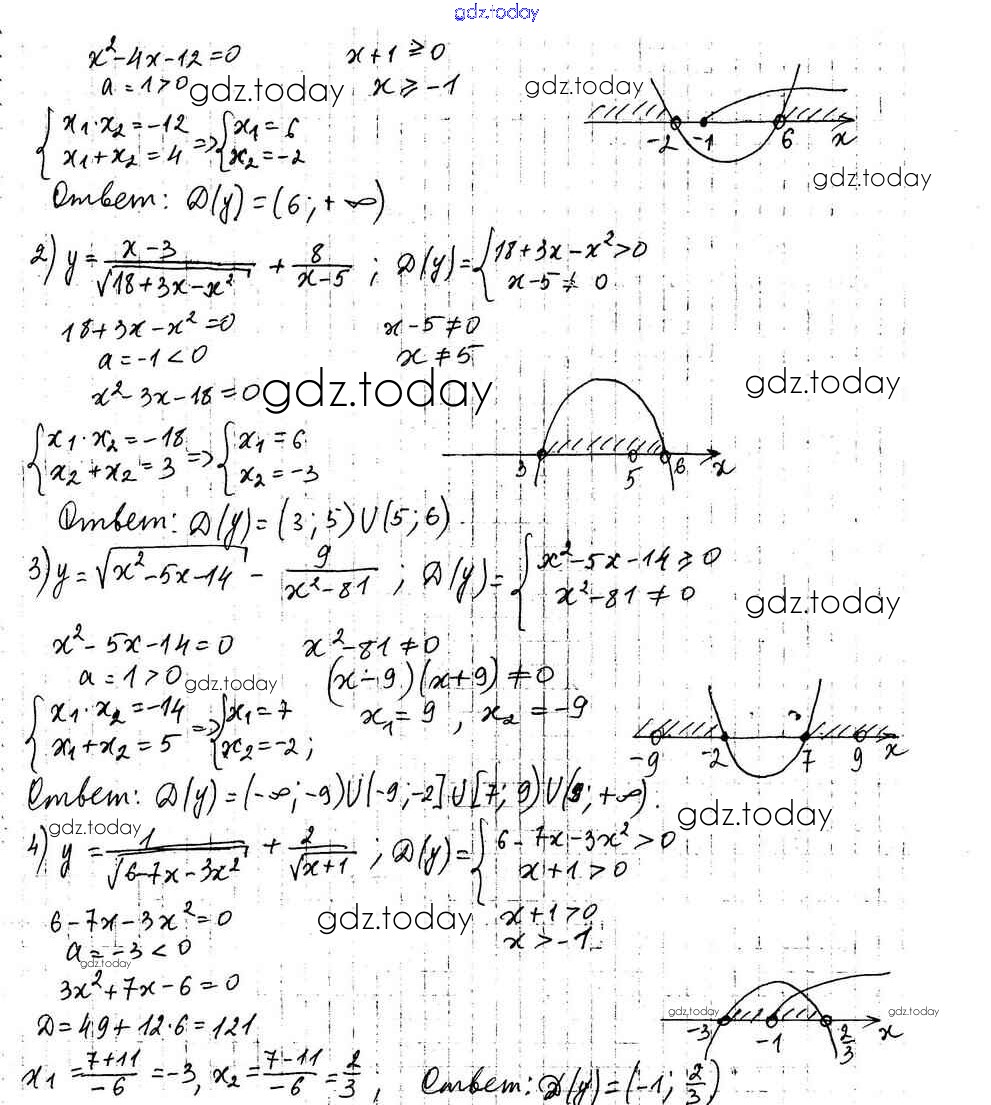 gdz.today
x²-4x-12=0 x+1≥0
a=1>0 gdz.today x≥-1 gdz.today
{x₁·x₂=-12 => {x₁=6
x₁+x₂=4 x₂=-2
-2 -1 6 x
gdz.today
Ответ: D(y)=(6;+∞)
2) y= (x-3)/√(18+3x-x²) + 8/(x-5) ; D(y)={18+3x-x²>0
x-5≠0
18+3x-x²=0 x-5≠0
a=-1<0 x≠5
x²-3x-18=0 gdz.today gdz.today
{x₁·x₂=-18 => {x₁=6
x₂+x₂=3 x₂=-3
3 5 6 x
Ответ: D(y)=(3;5)∪(5;6).
3) y=√(x²-5x-14) - 9/(x²-81) ; D(y)={x²-5x-14≥0
x²-81≠0
gdz.today
x²-5x-14=0 x²-81≠0
a=1>0 gdz.today (x-9)(x+9)≠0
{x₁·x₂=-14 => {x₁=7 x₁=9, x₂=-9
x₁+x₂=5 x₂=-2;
-9 -2 7 9 x
Ответ: D(y)=(-∞;-9)∪(-9;-2]∪[7;9)∪(9;+∞).
gdz.today gdz.today
4) y= 1/√(6-7x-3x²) + 2/√(x+1) ; D(y)={6-7x-3x²>0
x+1>0
6-7x-3x²=0 gdz.today x+1>0
a=-3<0 x>-1
gdz.today
3x²+7x-6=0
D=49+12·6=121
gdz.today gdz.today
-3 -1 2/3 x
x₁=(7+11)/-6=-3, x₂=(7-11)/-6=2/3; Ответ: D(y)=(-1; 2/3)